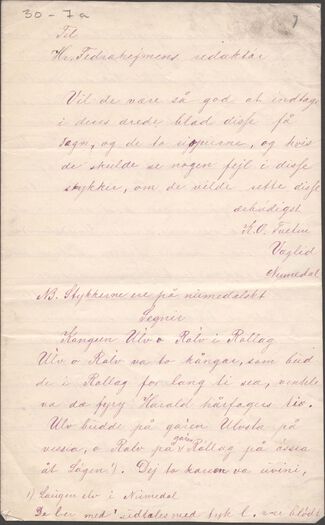 30 - 7a
Til
Hr. Fedraheimens redaktør
Vil de være så god at indtage
i deres ærede blad disse få
sagn, og de to
de skulde se nogen fejl i disse
stykker, om de vilde rette disse
ærbødigst
K. O.
Numedal
NB. Stykkerne ere på numedalskt
Segnir
Kongen Ulv o Rolv i Rollag
Ulv o Rolv va to kångar, som bud
de i Rollag for lang ti sea, ventele
va då fyry Harald hårfagers tid.
Ulv budde på garen Ulvsta på
vessia, o Rolv på garen Rollag på åssia
åt Lågen 1). Dej to karan va uvini,
1) Laugen elv i Numedal